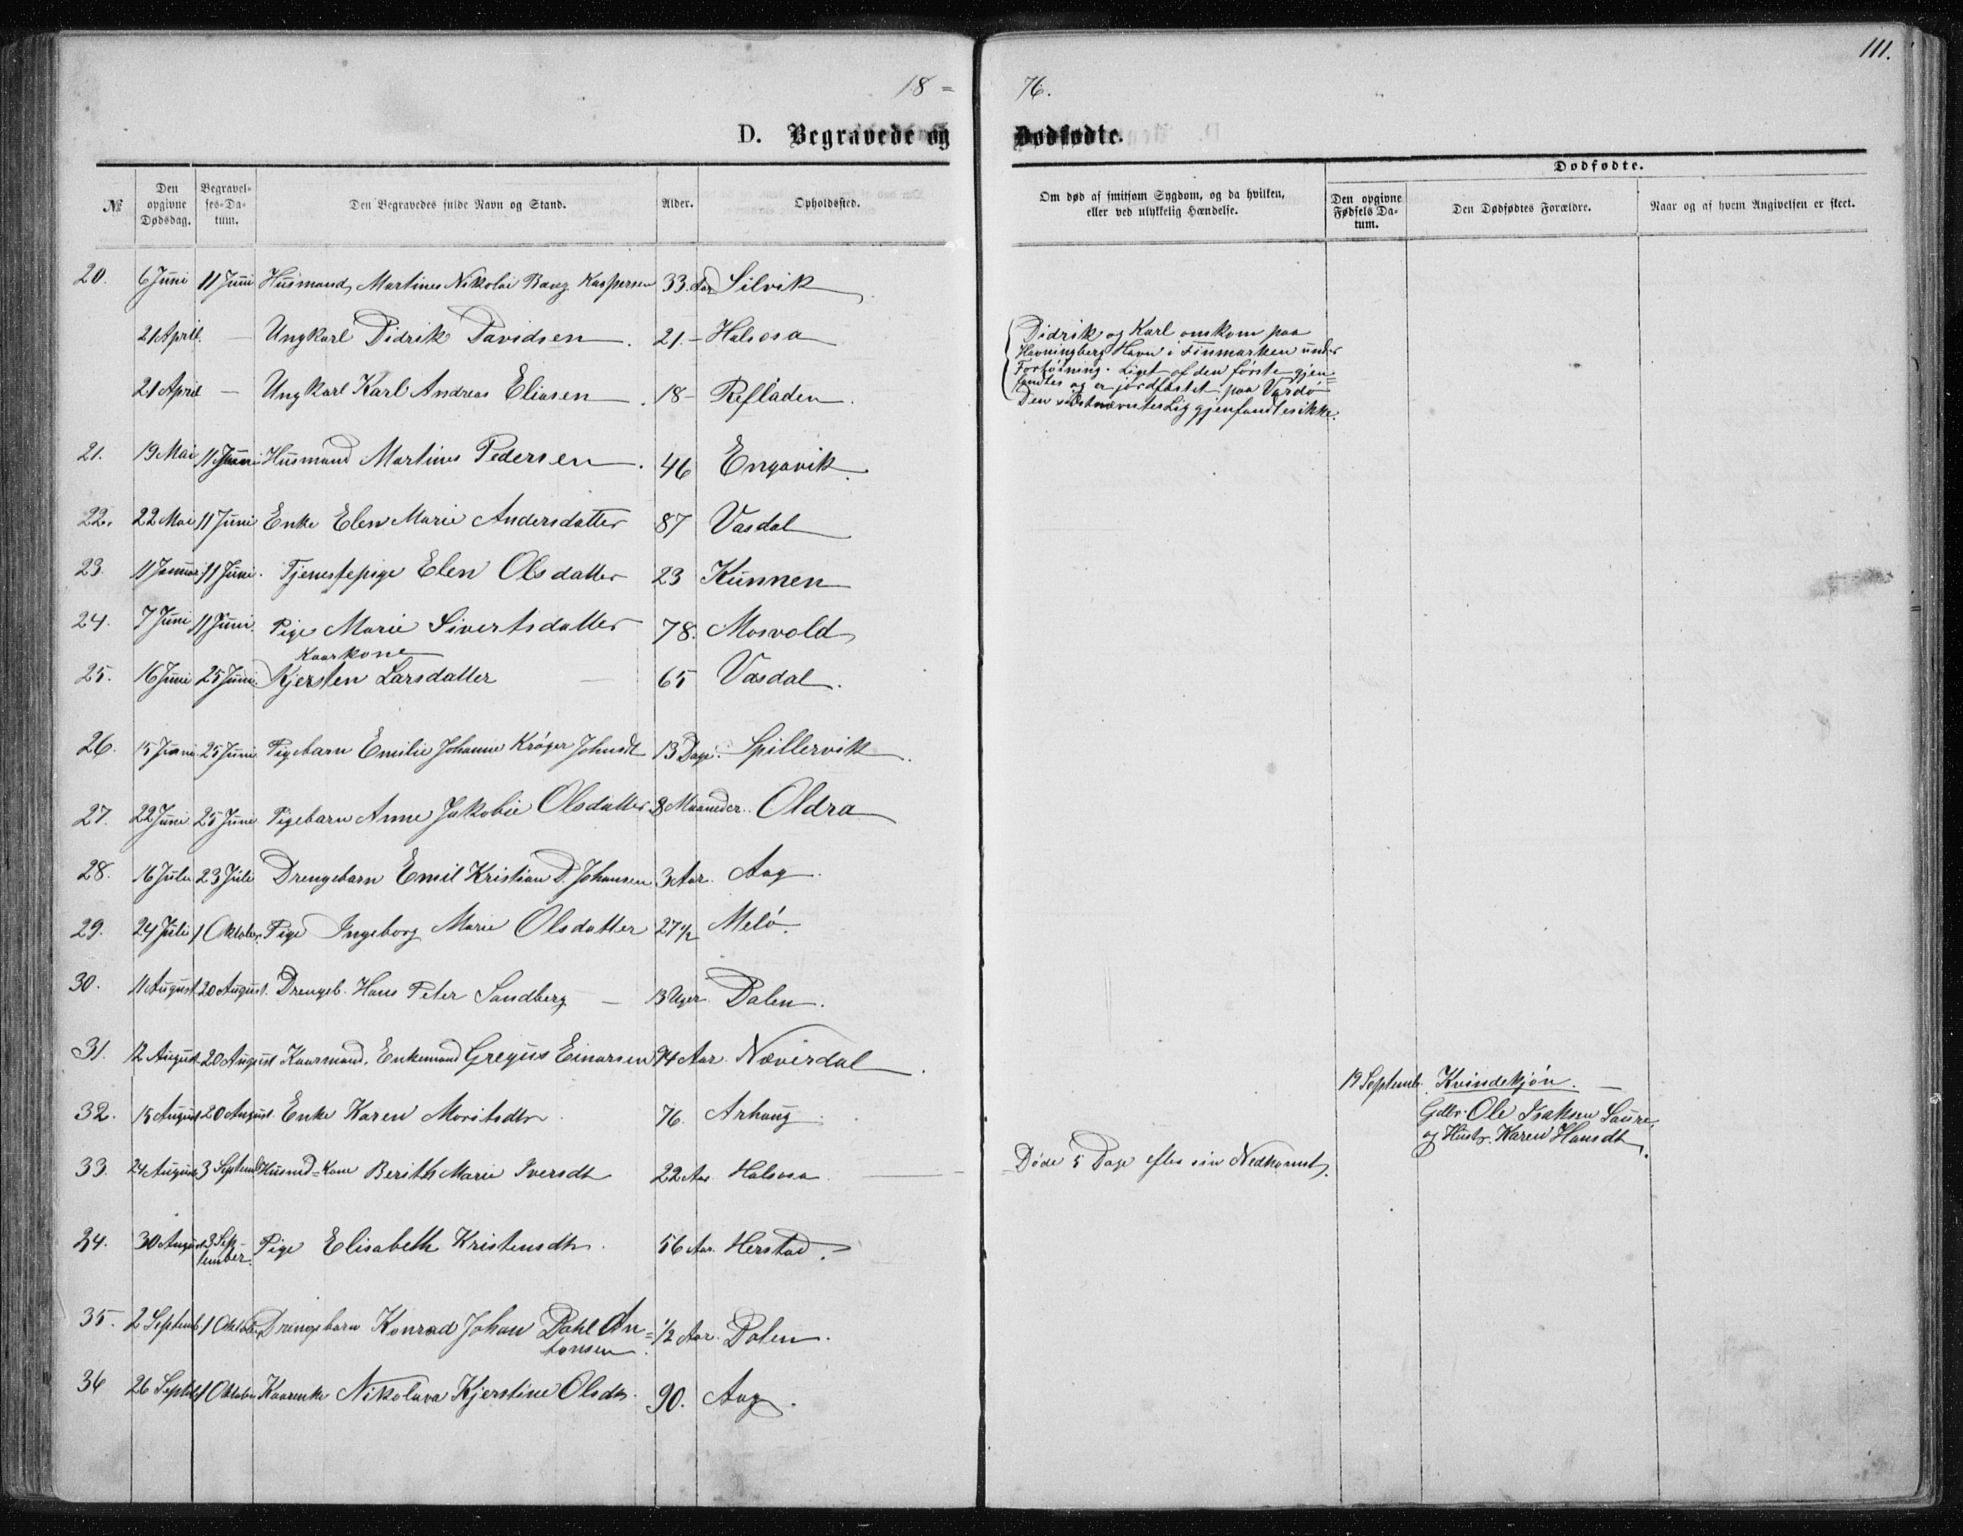 111.
18 = 76.
D. Begravede og Dødfødte.
Dødfødte.
№
Den opgivne Dødsdag.
Begravelses-Datum.
Den Begravedes fulde Navn og Stand.
Alder.
Opholdssted.
Om død af smitsom Sygdom, og da hvilken, eller ved ulykkelig Hændelse.
Den opgivne Fødsels Datum.
Den Dødfødtes Forældre.
Naar og af hvem Angivelsen er skeet.
20. 6 Juni 11 Juni Husmand, Martines Nikolai Bang Kaspersen 33 Aar Silvik
21 April. — Ungkarl Didrik Davidsen 21 – Halsosa
Didrik og Karl omkom paa
Havningberg Havn i Finmarken under
Fortøining. Liget af den første gjen=
fandtes og er jordfæstet paa Vardø
Den sidstnævntes Lig gjenfandtes ikke.
21 April — Ungkarl Karl Andreas Eliasen 18 – Refladen.
21. 19 Mai 11 Juni Husmand Martines Pedersen 46 Engavik.
22. 22 Mai 11 Juni Enke Elen Marie Andersdatter 87 Vasdal
23. 11 Januar 11 Juni. Tjenestepige Elen Olsdatter 23 Kunnen
24. 7 Juni 11 Juni. Pige Marie Sivertsdatter 78. Mosvold
Kaarkone
25. 16 Juni 25 Juni. Kjersten Larsdatter — 65 Vasdal.
26. 15 Juni 25 Juni Pigebarn Emilie Johanne Krøger Johnsdt 13 Dage. Spillervik.
27. 22 Juni 25 Juni Pigebarn Anne Jakobie Olsdatter 8 Maaneder. Oldra
28. 16 Juli 23 Juli Drengebarn Emil Kristian D. Johansen 3 Aar. Aag.
29. 24 Juli 1 Oktober. Pige Ingeborg Marie Olsdatter 27 1/2 Melø.
30. 11 August 20 August. Drengeb. Hans Peter Sandberg — 13 Uger. Dalen.
31. 12 August 20 August Kaarmand, Enkemand Gregus Einarsen 94 Aar. Næverdal.
19 Septemb. Kvindekjøn. —
32. 15 August 20 August. Enke Karen Moritsdtr. 76. Arhaug.
Gdbr. Ole Isaksen Saure,
og Hustr. Karen Hansdt.
33. 24 August 3 Septemb Husmd=Kone Berith Marie Iversdt 22 Aar Halsosa.
Døde 5 Dage efter sin Nedkomst.
34. 30 August 3 Sep-
tember. Pige Elisabeth Kristensdtr. 56 Aar. Herstad.
35. 2 Septemb 1 Oktober Drengebarn Konrad Johan Dahl An=
tonsen. 1/2 Aar. Dalen.
36 26 Septb 1 Oktober Kaarenke Nikolava Kjerstine Olsdtr. 90. Aag.